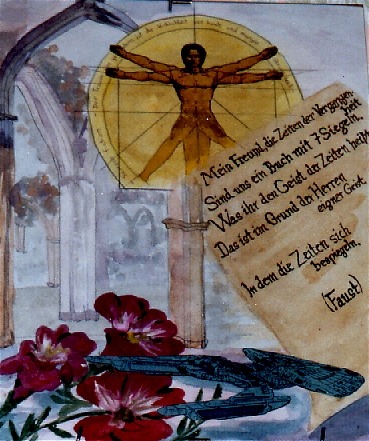 Mein Freund, die Zeiten der Vergangen-
heit
Sind uns ein Buch mit 7 Siegeln,
Was ihr den Geist der Zeiten heißt
Das ist im Grund der Herren
eigner Geist
In dem die Zeiten sich
bespiegeln.
(Faust)